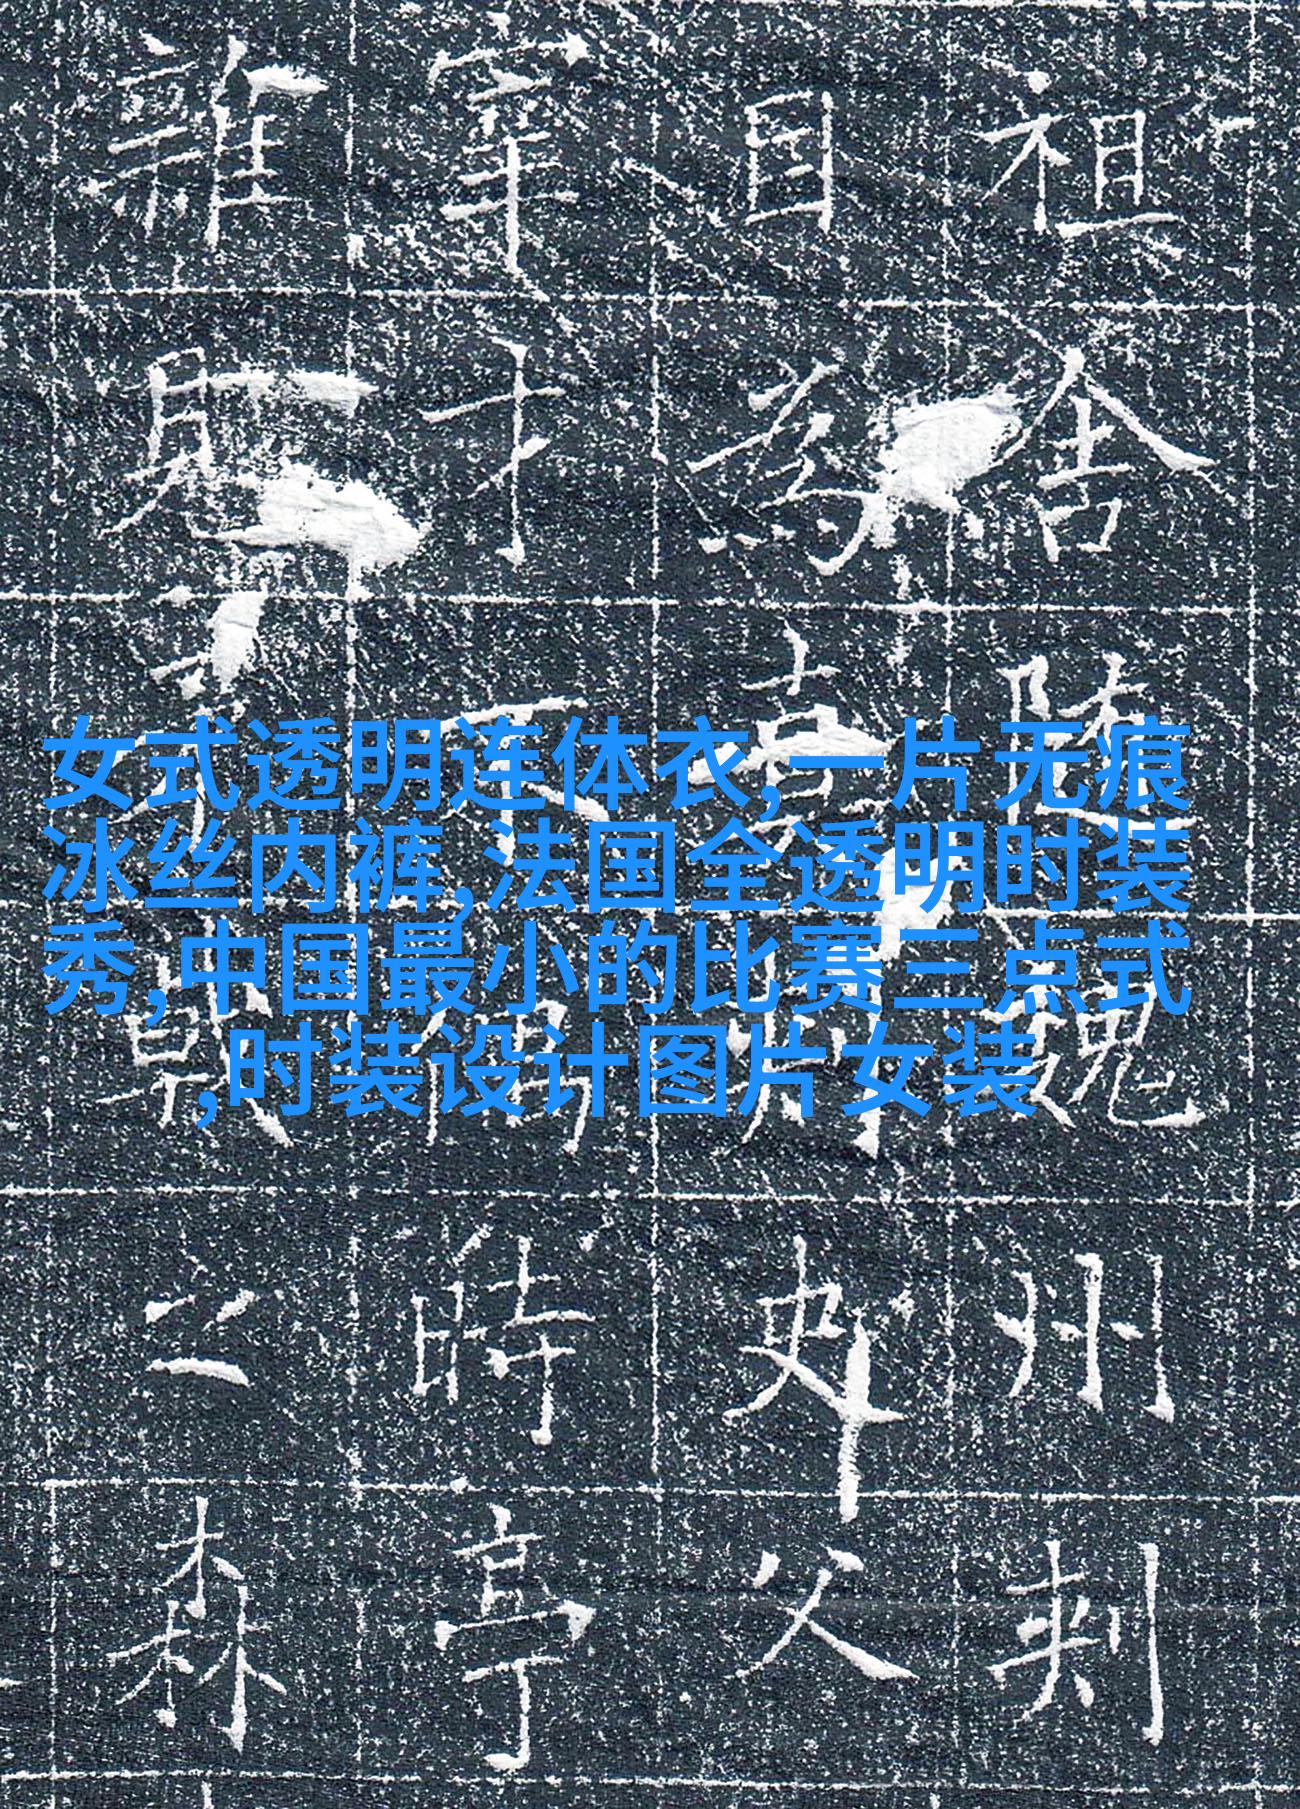 女式透明连体衣,一片无痕
冰丝内裤,法国全透明时装
秀,中国最小的比赛三点式
,时装设计图片女装
祖舍陸魏州刺
為史父
宰才不時亭
森